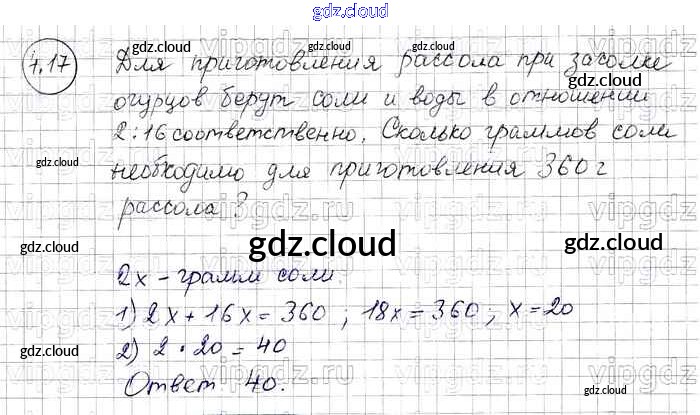 gdz.cloud
4.17 Для приготовления рассола при засолке
огурцов берут соли и воды в отношении
2:16 соответственно. Сколько граммов соли
необходимо для приготовления 360 г
рассола?
gdz.cloud
2х - грамм соли.
1) 2х + 16х = 360 ; 18х = 360; х = 20
2) 2 · 20 = 40
Ответ 40.